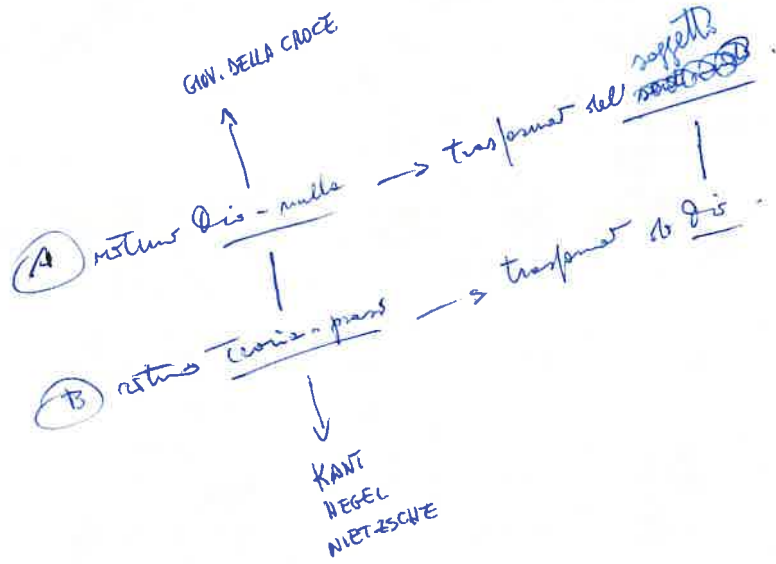 GIOV. DELLA CROCE
soggetto
(A) ritmo Dio - nulla → trasformaz del .
(B) ritmo Teoria - prassi → trasformaz di Dio .
KANT
HEGEL
NIETZSCHE